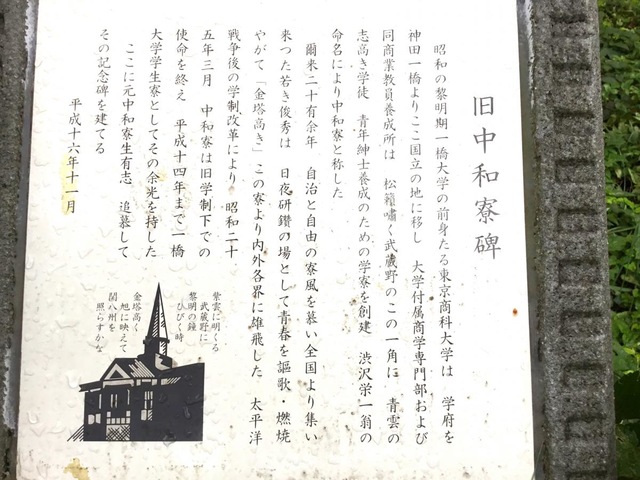 旧中和寮碑
昭和の黎明期一橋大学の前身たる東京商科大学は 学府を
神田一橋よりここ国立の地に移し 大学付属商学専門部および
同商業教員養成所は 松籟嘯く武蔵野のこの一角に 青雲の
志高き学徒 青年紳士養成のための学寮を創建 渋沢栄一翁の
命名により中和寮と称した
爾来二十有余年 自治と自由の寮風を慕い全国より集い
来つた若き俊秀は 日夜研鑽の場として青春を謳歌・燃焼
やがて「金塔高き」この寮より内外各界に雄飛した 太平洋
戦争後の学制改革により 昭和二十
五年三月 中和寮は旧学制下での
使命を終え 平成十四年まで一橋
大学学生寮としてその余光を持した
ここに元中和寮生有志 追慕して
その記念碑を建てる
平成十六年十一月
紫雲に明くる
武蔵野に
黎明の鐘
ひびく時
金塔高く
旭に映えて
関八州を
照らすかな